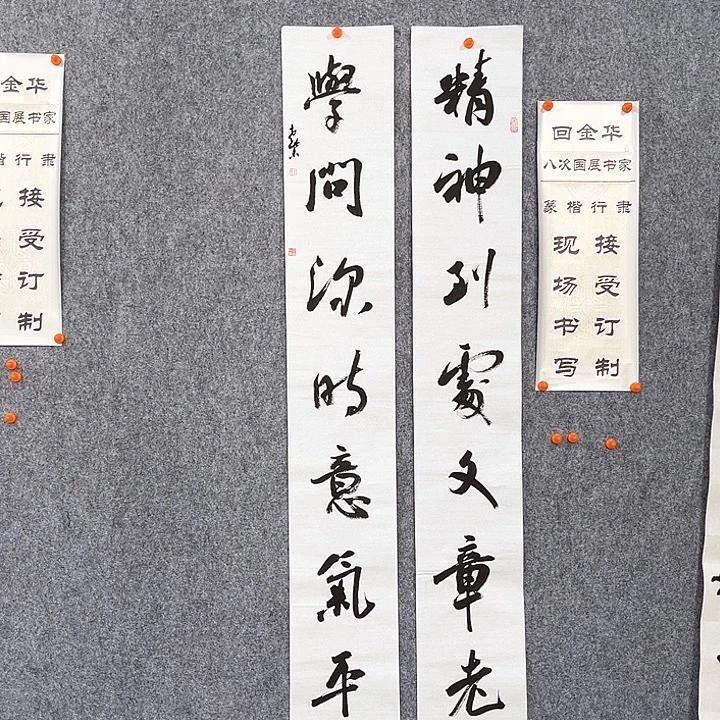 精神到處文章老
學問深時意氣平
回金华
八次国展书家
篆楷行隶
接受订制
现场书写
金华
国展书家
楷行隶
接受订制